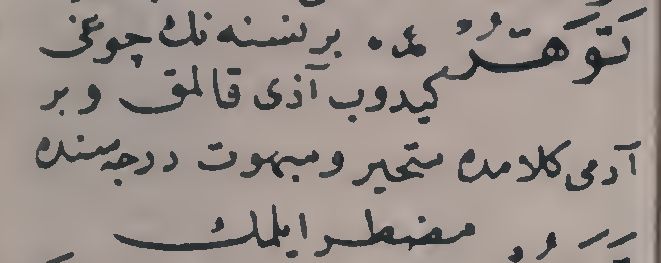 تَوَهُّرٌ ء م بر نسنه نك چوغى
كيدوب آزى قالمق و بر
آدمى كلامده متحير و مبهوت درجه سنده
مضطر ايلمك